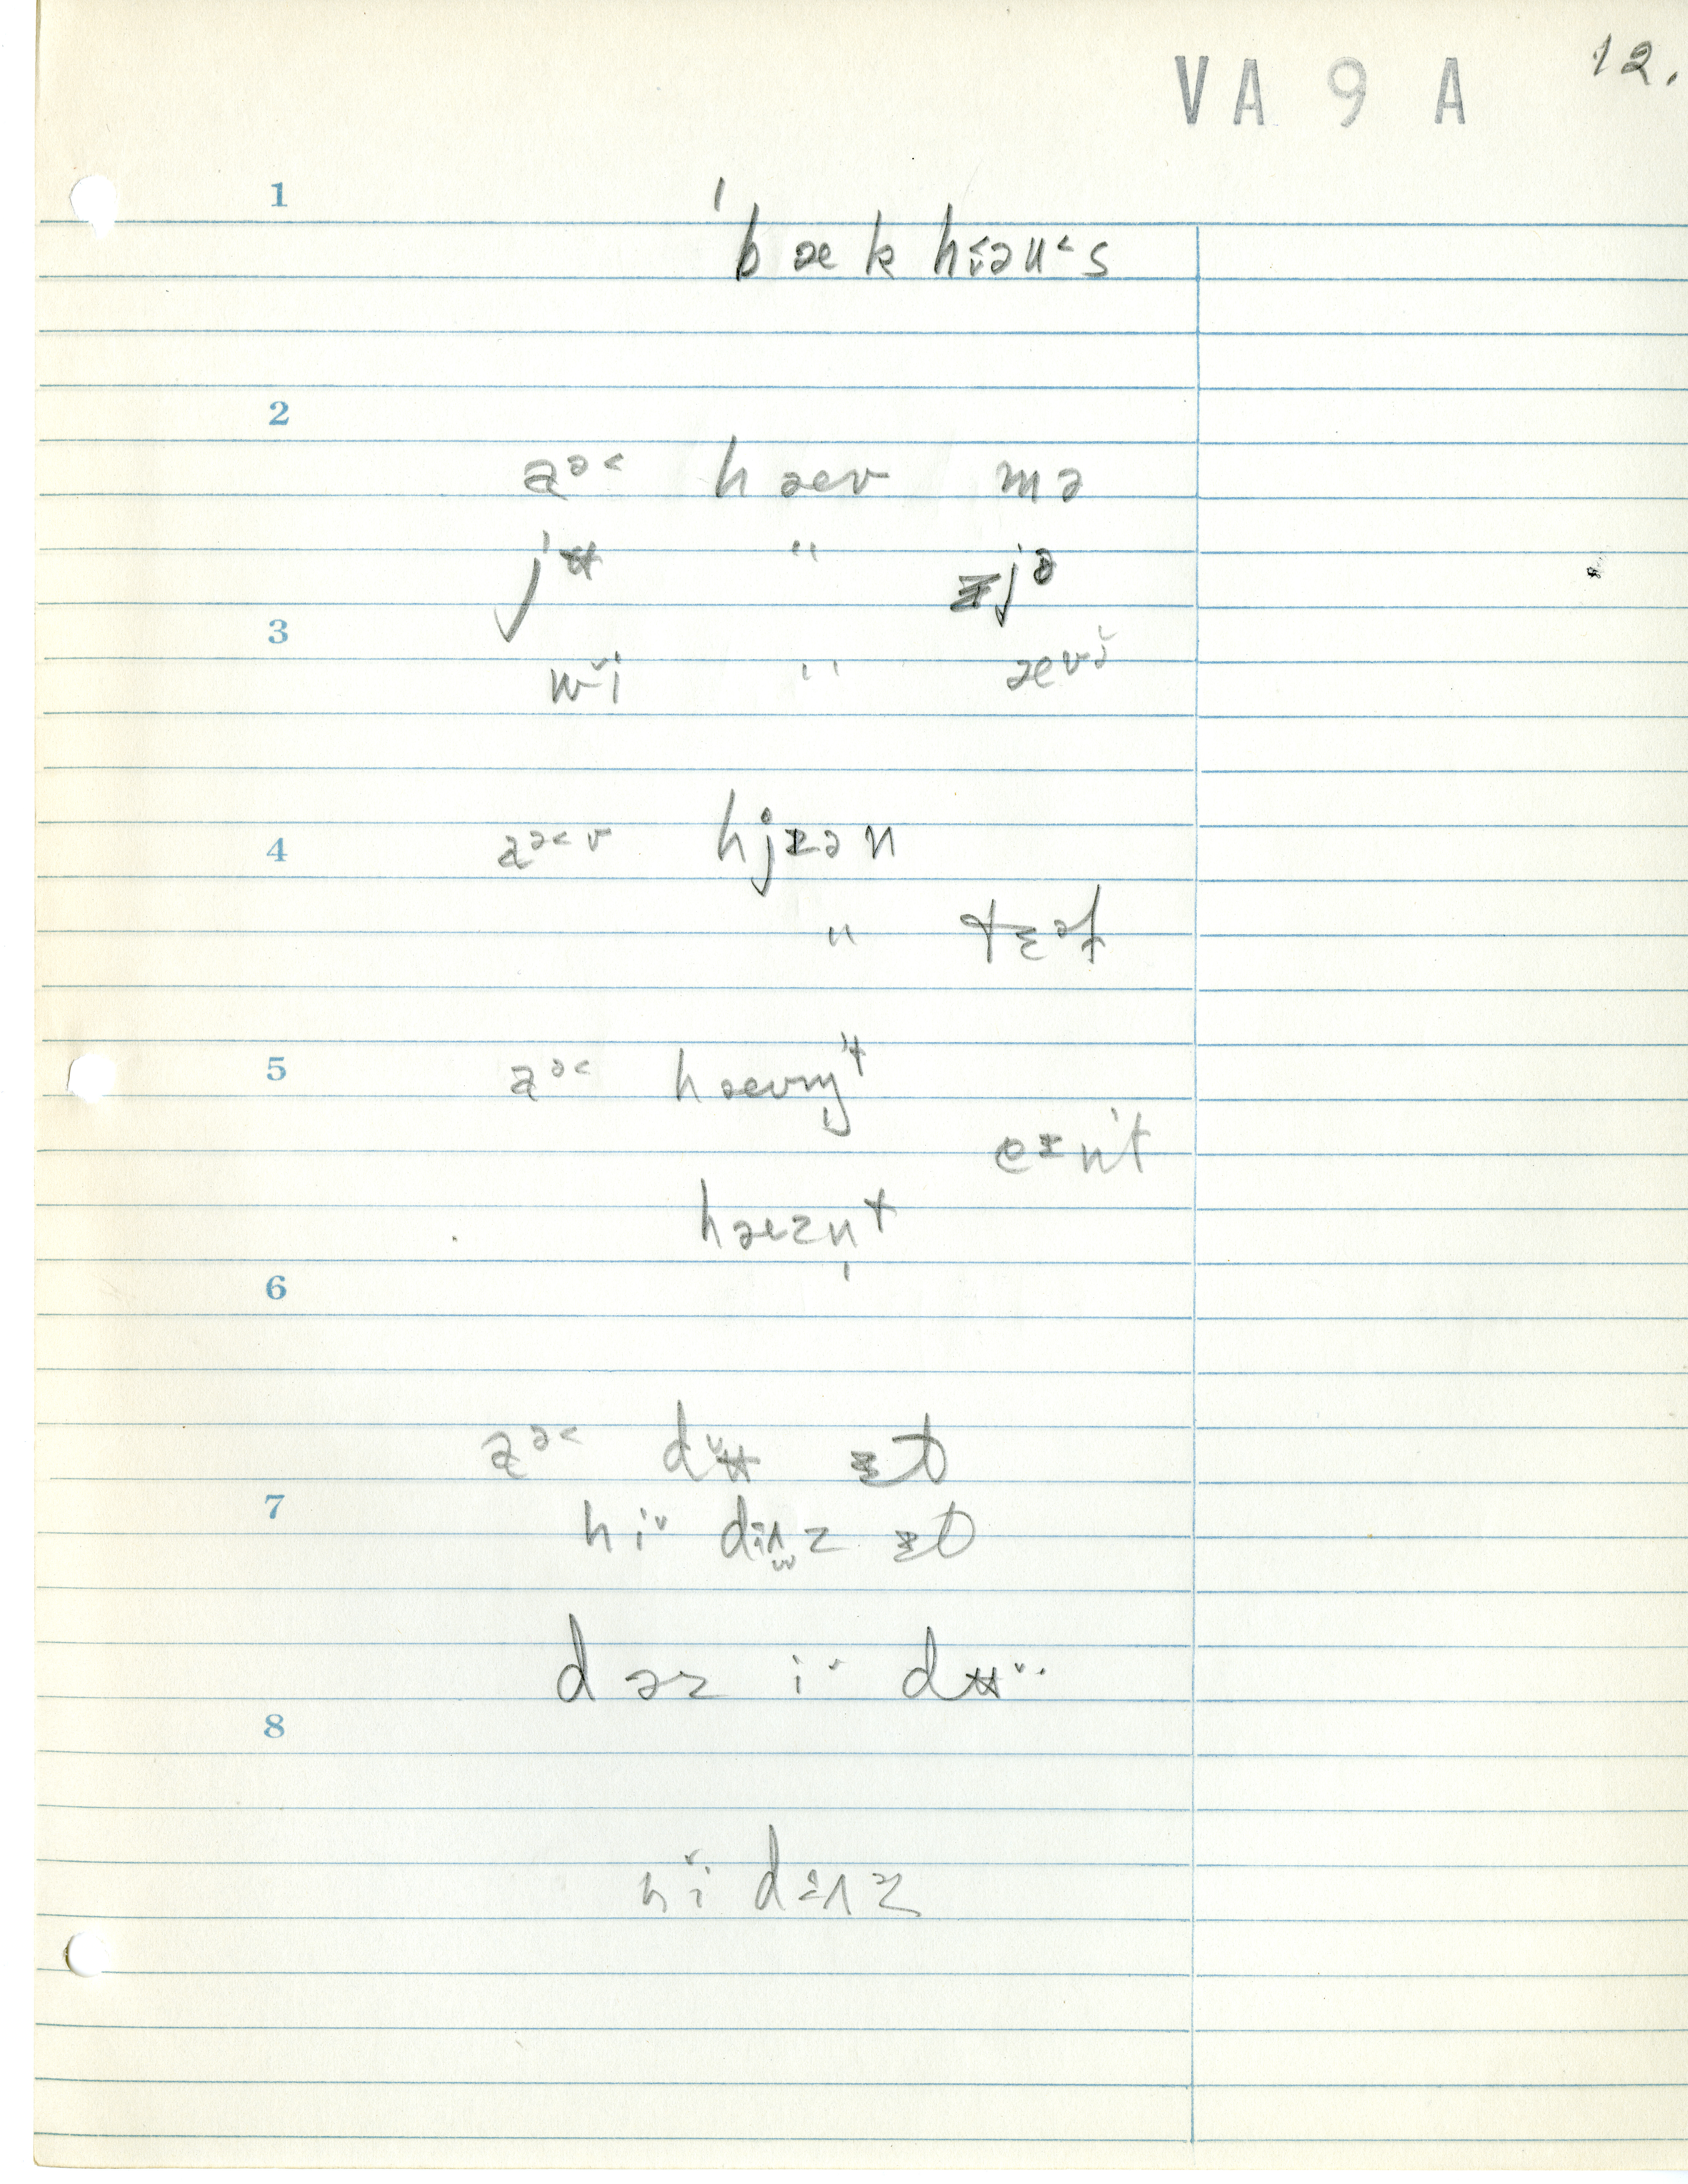 VA 9 A 12.
1
ˈbæk hɪəuˑs
2
aᵊ˂ hæv mə
jʉ " ɪjə
3
wĭi " ævɪ̆
4
aᵊ˂v hjɪən
" tɛət
5
aᵊ˂ hævn̩t
eɪnˈt
hæzn̩t
6
aᵊ˂ dʉ ɪt
7
hiˇ dʌz ɪt
dəz iˇ dʉˇ
8
hĭi dʌz